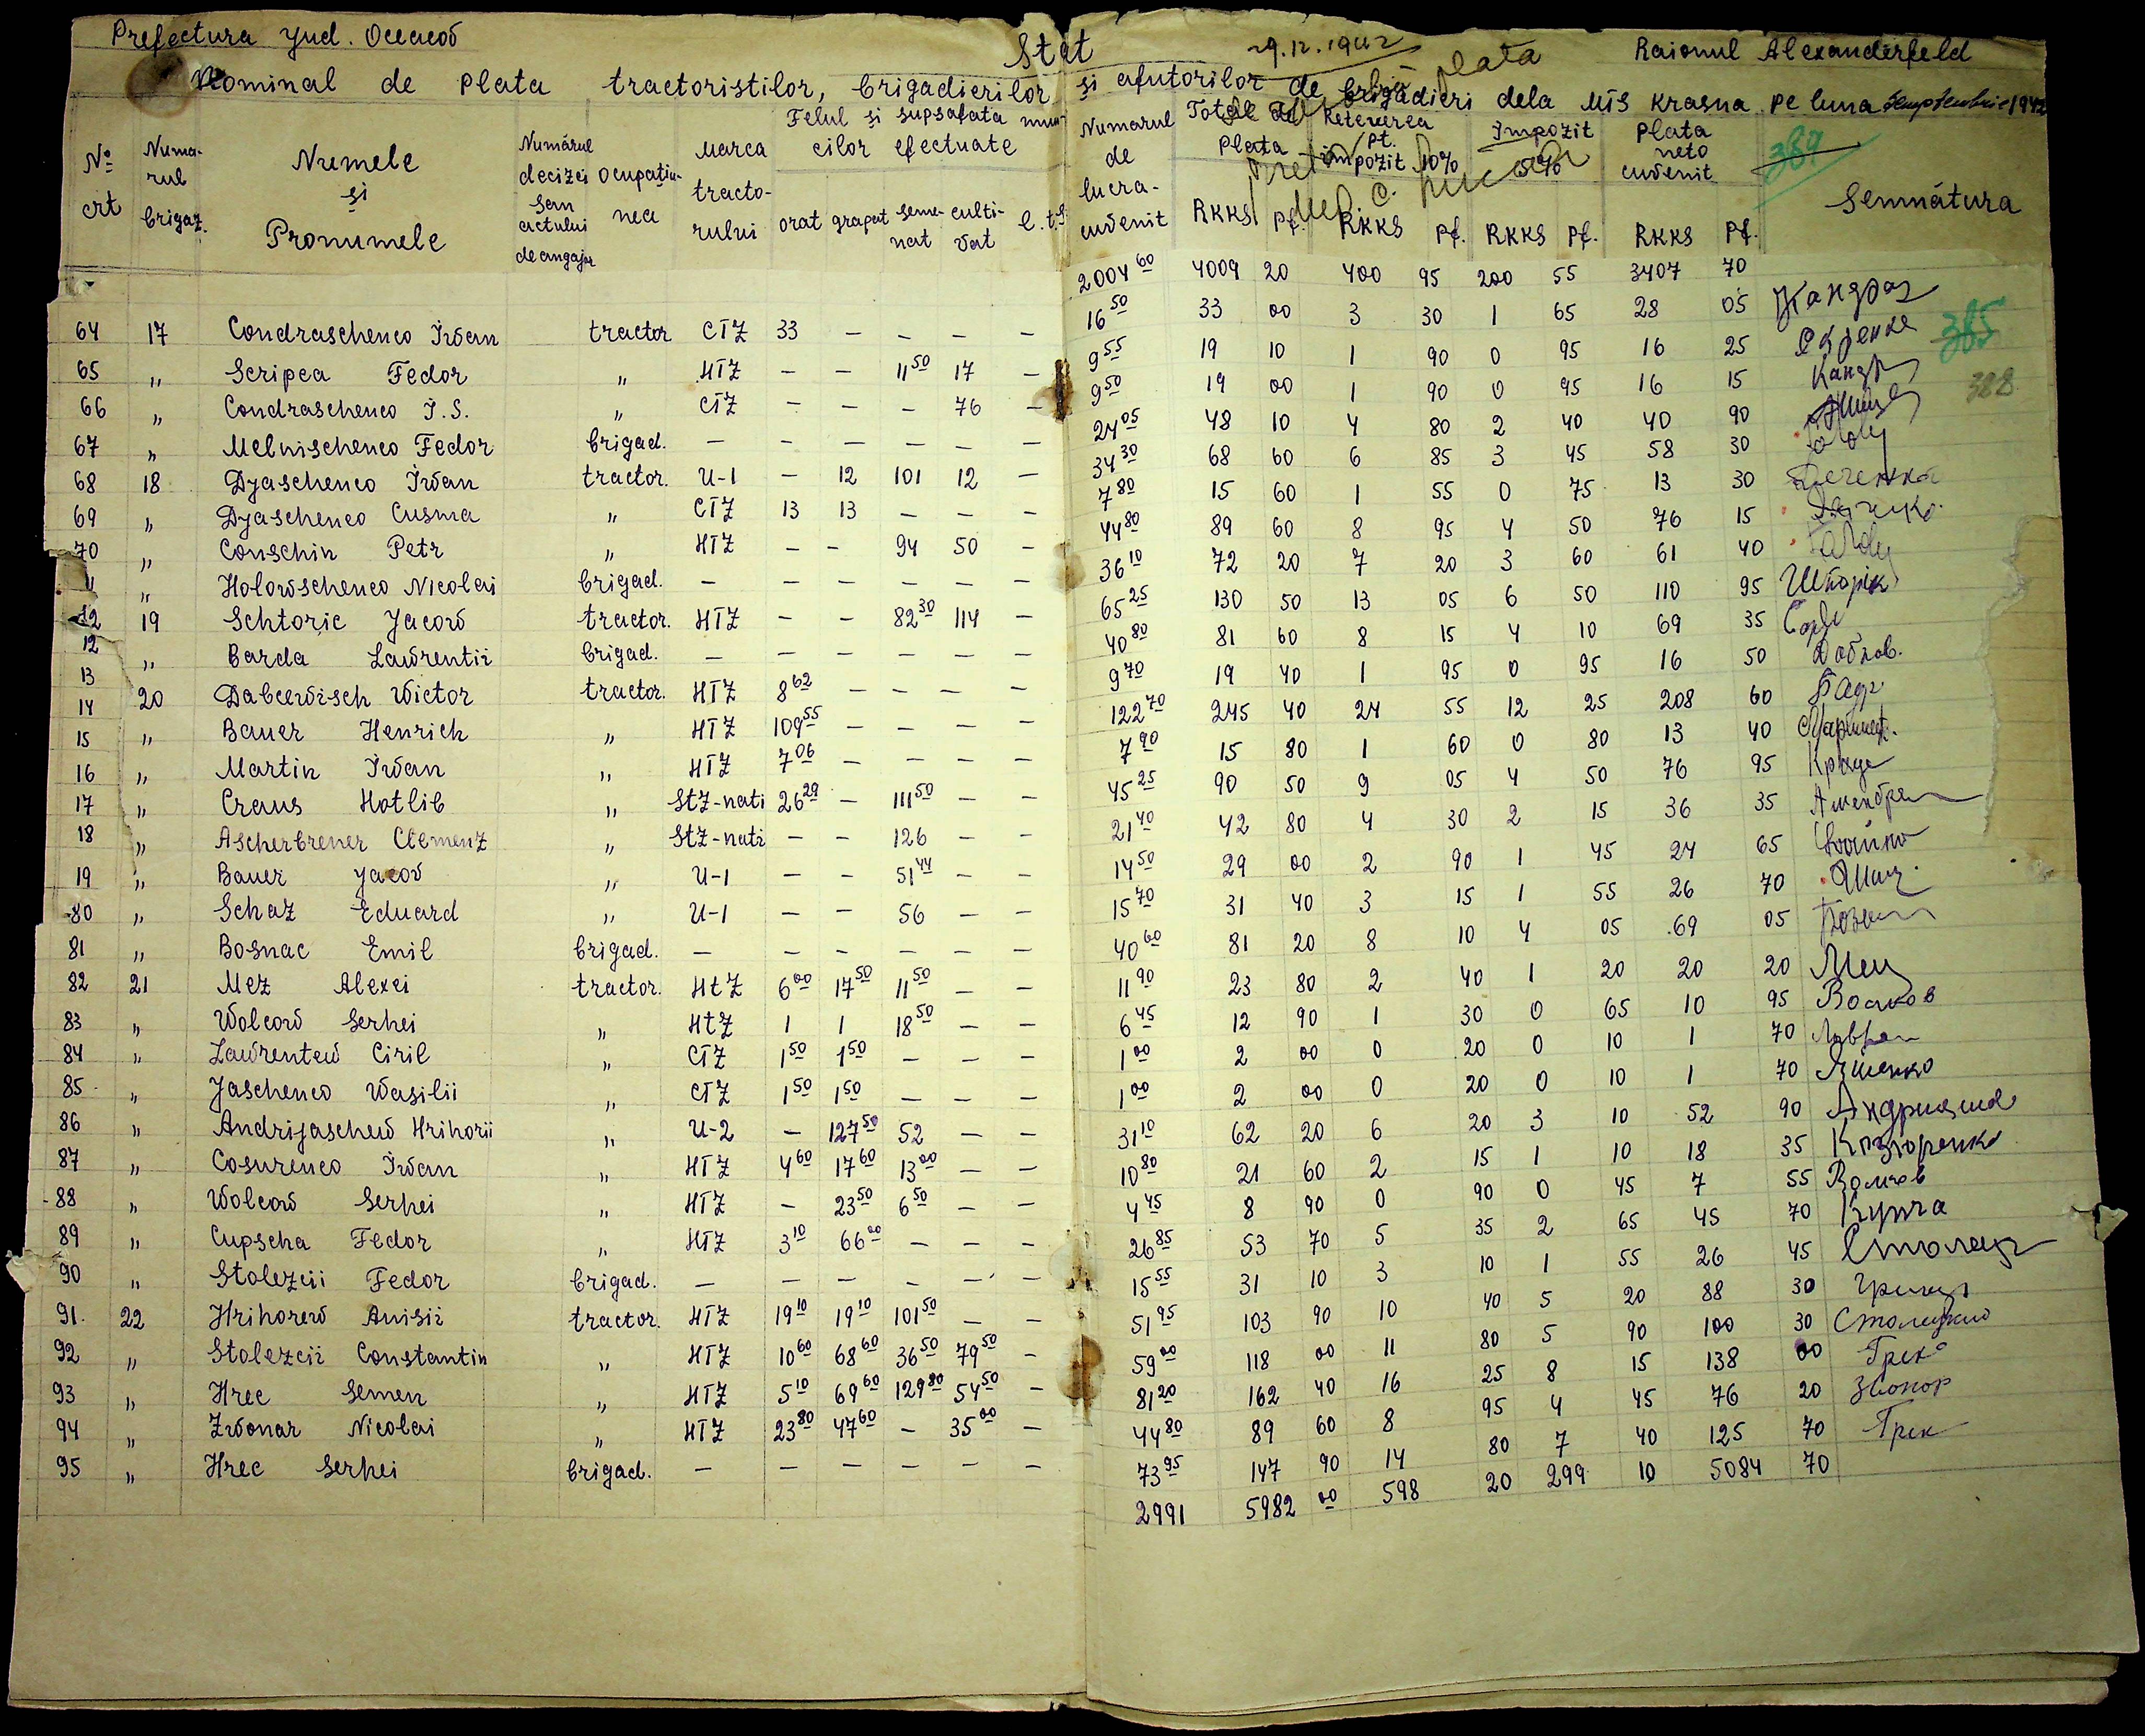 Prefectura Jud. Oceacov Stat 29.12.1942 plata Raionul Alexanderfeld
Nominal de plata tractoristilor, brigadierilor și ajutorilor de brigadieri dela MTS Krasna pe luna Semptembrie 1942
389
No crt Numarul brigaz. Numele și Pronumele Numărul decizei sau actului de angajar Ocupațiunea Marca tractorului Felul și supsafata muncilor efectuate orat grapat semenat cultivat e.t.s. Numarul de lucra- cuvenit Plata RKKS Pf. Retenerea pt. impozit 10% RKKS Pf. Impozit 5% RKKS Pf. Plata neto cuvenit RKKS Pf. Semnătura
2004 60 4009 20 400 95 200 55 3407 70
64 17 Condraschenco Iwan tractor CTZ 33 — — — — 16 50 33 00 3 30 1 65 28 05
65 " Scripca Fedor " HTZ — — 11 50 17 — 9 55 19 10 1 90 0 95 16 25 385
66 " Condraschenco I.S. " CTZ — — — 76 — 9 50 19 00 1 90 0 95 16 15 388
67 " Melnischenco Fedor brigad. — — — — — — 24 05 48 10 4 80 2 40 40 90
68 18 Djaschenco Iwan tractor. U-1 — 12 101 12 — 34 30 68 60 6 85 3 45 58 30
69 " Djaschenco Cusma " CTZ 13 13 — — — 7 80 15 60 1 55 0 75 13 30
70 " Conschin Petr " HTZ — — 94 50 — 44 80 89 60 8 95 4 50 76 15
" Holowschenco Nicolai brigad. — — — — — — 36 10 72 20 7 20 3 60 61 40
12 19 Schtoric Jacow tractor. HTZ — — 82 30 114 — 65 25 130 50 13 05 6 50 110 95 Шторік
12 " Barda Lawrentii brigad. — — — — — — 40 80 81 60 8 15 4 10 69 35
13 20 Dabcewisch Wictor tractor. HTZ 8 62 — — — — 9 70 19 40 1 95 0 95 16 50
14 " Bauer Henrich " HTZ 109 55 — — — — 122 70 245 40 24 55 12 25 208 60
15 " Martin Iwan " HTZ 7 06 — — — — 7 90 15 80 1 60 0 80 13 40
16 " Craus Hotlib " StZ-nati 26 29 — 111 50 — — 45 25 90 50 9 05 4 50 76 95
17 " Ascherbrener Clemenz " StZ-nati — — 126 — — 21 40 42 80 4 30 2 15 36 35
18 19 " Bauer Jacov " U-1 — — 51 44 — — 14 50 29 00 2 90 1 45 24 65
80 " Schaz Eduard " U-1 — — 56 — — 15 70 31 40 3 15 1 55 26 70
81 " Bosnac Emil brigad. — — — — — — 40 60 81 20 8 10 4 05 69 05
82 21 Mez Alexei tractor. HtZ 6 00 17 50 11 50 — — 11 90 23 80 2 40 1 20 20 20 Мец
83 " Wolcow Serhei " HtZ 1 1 18 50 — — 6 45 12 90 1 30 0 65 10 95 Волков
84 " Lawrentew Ciril " CTZ 1 50 1 50 — — — 1 00 2 00 0 20 0 10 1 70
85 " Jaschenco Wasilii " CTZ 1 50 1 50 — — — 1 00 2 00 0 20 0 10 1 70 Ященко
86 " Andrijaschew Hrihorii " U-2 — 127 50 52 — — 31 10 62 20 6 20 3 10 52 90
87 " Cosurenco Iwan " HTZ 4 60 17 60 13 00 — — 10 80 21 60 2 15 1 10 18 35 Козюренко
88 " Wolcow Serhei " HTZ — 23 50 6 50 — — 4 45 8 90 0 90 0 45 7 55 Волков
89 " Cupscha Fedor " HTZ 3 10 66 00 — — — 26 85 53 70 5 35 2 65 45 70 Купча
90 " Stolezcii Fedor brigad. — — — — — — 15 55 31 10 3 10 1 55 26 45
91 22 Hrihorew Anisii tractor. HTZ 19 10 19 10 101 50 — — 51 95 103 90 10 40 5 20 88 30
92 " Stolezcii Constantin " HTZ 10 60 68 60 36 50 79 50 59 00 118 00 11 80 5 90 100 30
93 " Hrec Semen " HTZ 5 10 69 60 129 80 54 50 — 81 20 162 40 16 25 8 15 138 00 Грек
94 " Zwonar Nicolai " HTZ 23 80 47 60 — 35 00 — 44 80 89 60 8 95 4 45 76 20 Звонор
95 " Hrec Serhei brigad. — — — — — — 73 95 147 90 14 80 7 40 125 70 Грек
2991 5982 00 598 20 299 10 5084 70